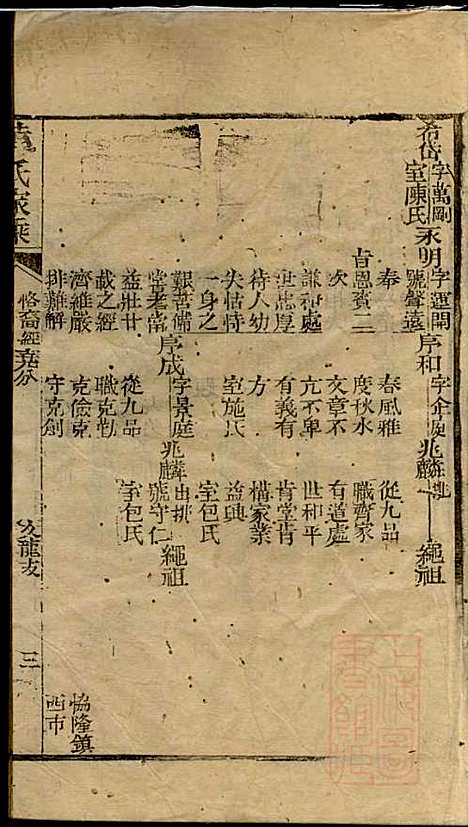 希岱 字萬剛 室陳氏 永明 字運開 號聲遠 序和 兆麟 繩祖
奉 春風雅 從九品
旨恩賚二 度秋水 職齊家
次 文章不 有道處
謙和處 亢不卑 世和平
世忠厚 有義有 肯堂肯
待人幼 方 構家業
失怙恃 室施氏 益興
一身之 室包氏
艱苦備 序成 字景庭 兆麟 號守仁 繩祖
嘗老當
益壯廿 從九品 室包氏
載之經 職克勤
濟維嚴 克儉克
排難解 守克創
協隆鎮
西市
氏家乘
恪裔經堯分
龍支
三